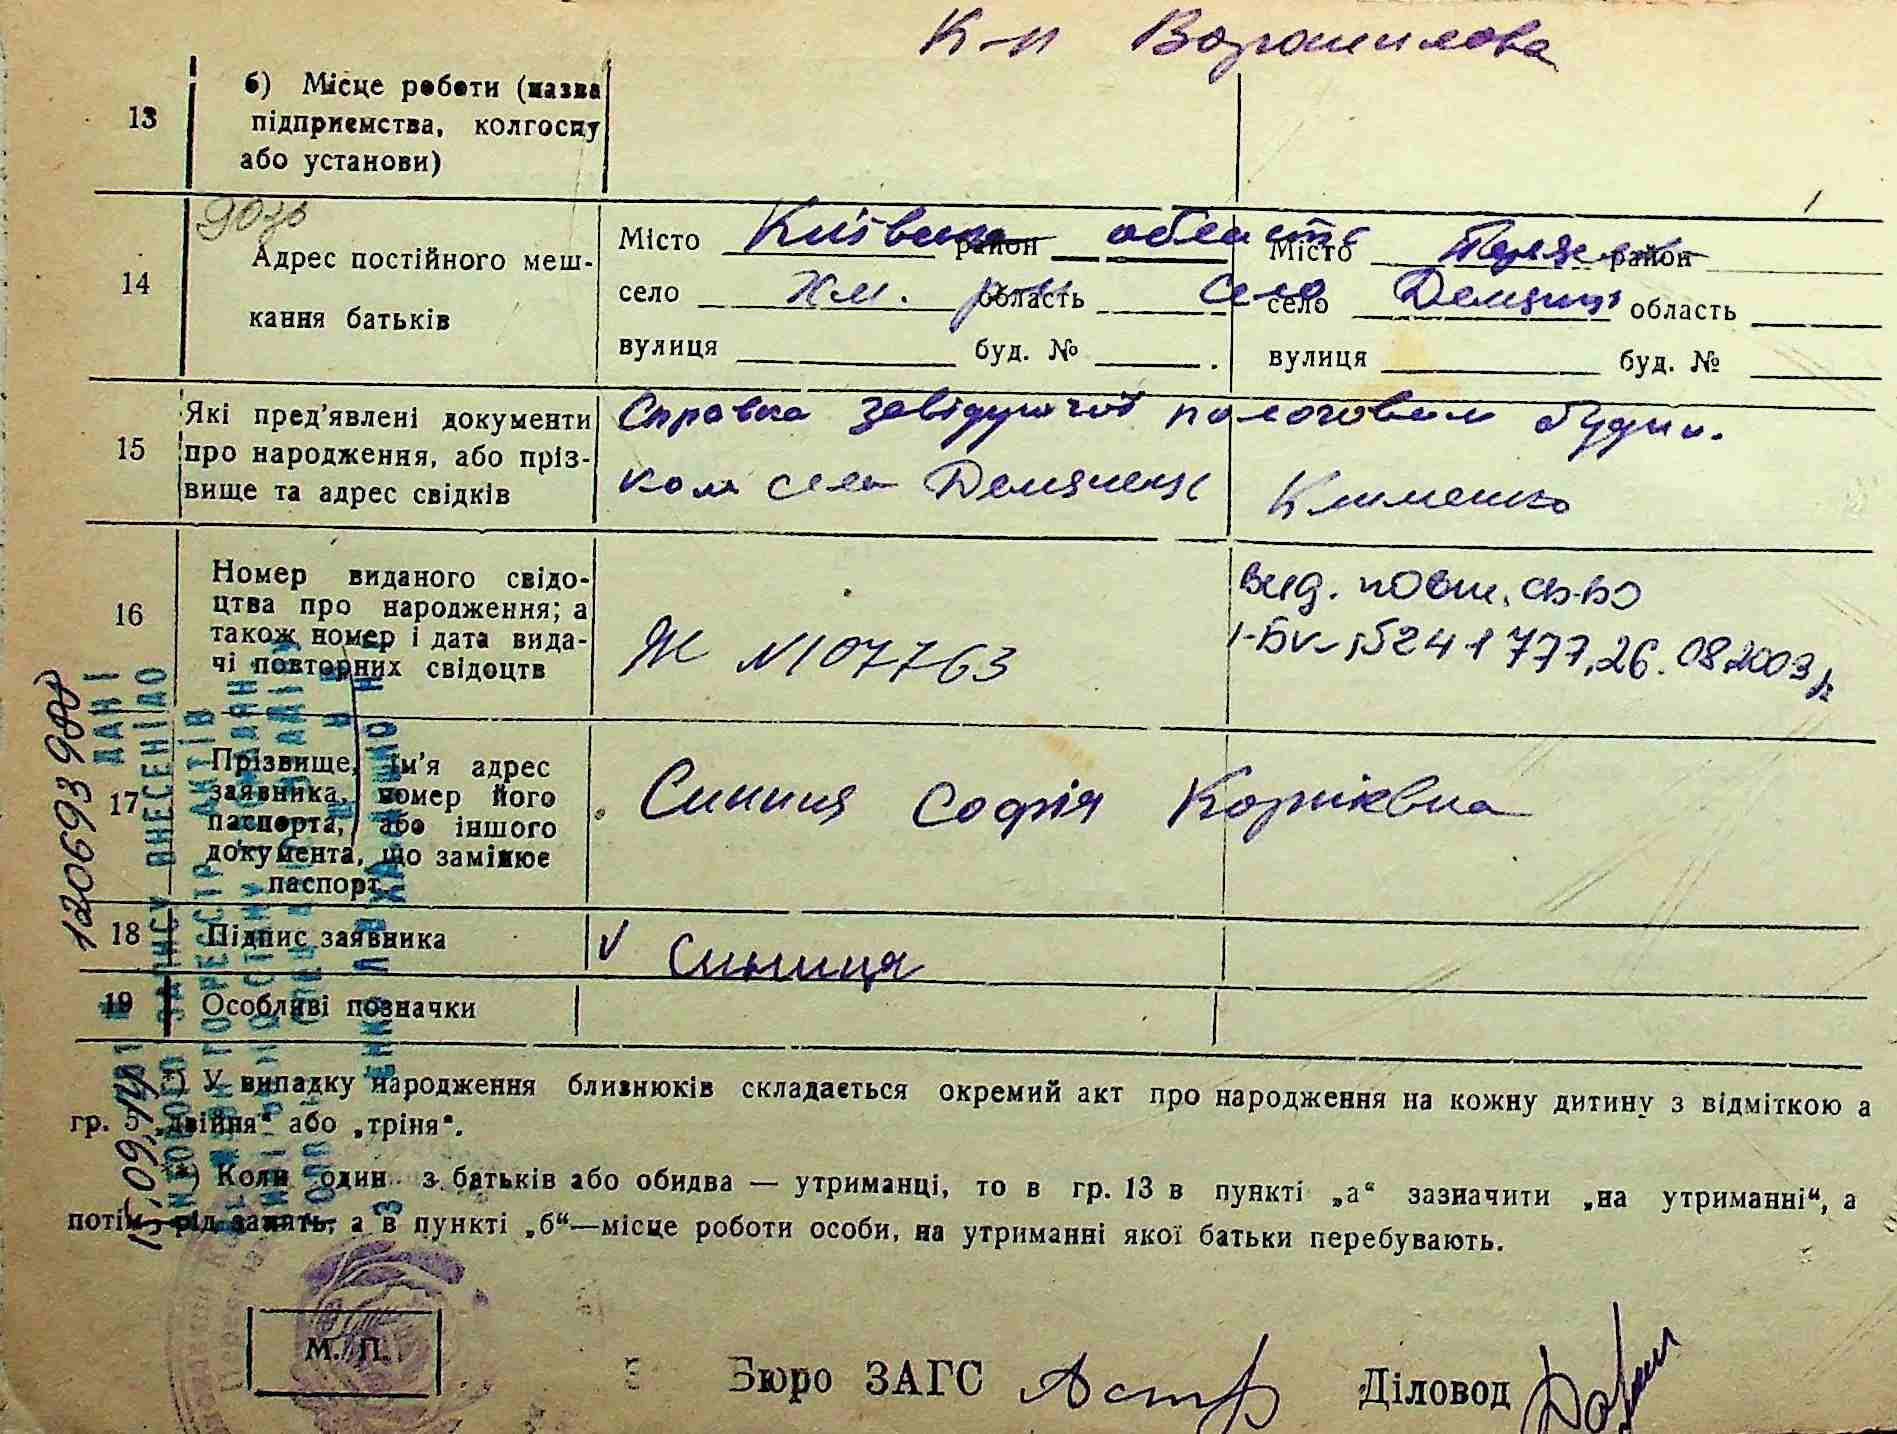 К-п Ворошилова
13 б) Місце роботи (назва
підприємства, колгоспу
або установи)
14 Адрес постійного меш-
кання батьків
Місто Київська район область Місто район
село Хм. р-н область село село Демянці область
вулиця буд. № вулиця буд. №
15 Які пред'явлені документи
про народження, або пріз-
вище та адрес свідків
Справка завідуючої пологовим будин.
ком села Демянець Клименко
16 Номер виданого свідо-
цтва про народження; а
також номер і дата вида-
чі повторних свідоцтв
Ж №107763
вид. повт. св-во
І-БК №5241777, 26.08.2003р
17 Прізвище, ім'я адрес
заявника, номер його
паспорта, або іншого
документа, що замінює
паспорт
Синиця Софія Корніївна
18 Підпис заявника
V Синиця
19 Особливі позначки
*) У випадку народження близнюків складається окремий акт про народження на кожну дитину з відміткою а
гр. 5 „двійня“ або „тріня“.
*) Коли один з батьків або обидва — утриманці, то в гр. 13 в пункті „а“ зазначити „на утриманні“, а
потім рід занять, а в пункті „б“—місце роботи особи, на утриманні якої батьки перебувають.
М. П.
Бюро ЗАГС
Діловод